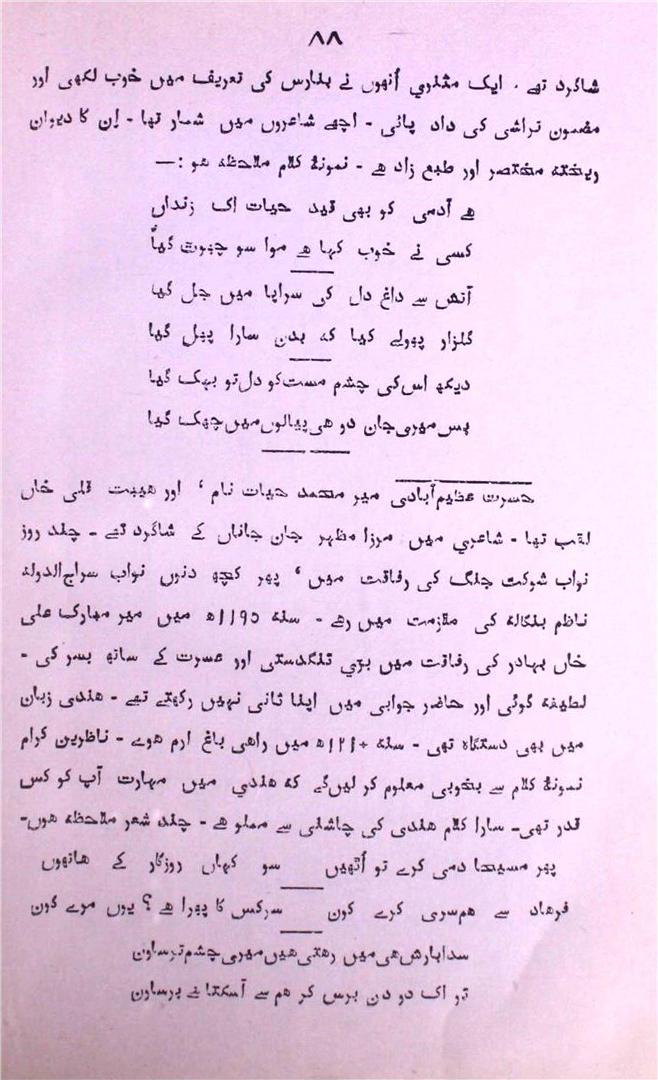 ۸۸
شاگرد تھے ۔ ایک مثنوي اُنھوں نے بنارس کی تعریف میں خوب لکھی اور
مضمون تراشی کی داد پائی - اچھے شاعروں میں شمار تھا - اِن کا دیوان
ریختہ مختصر اور طبع زاد ھے - نمونۂ کلام ملاحظہ ھو :—
ھے آدمی کو بھی قید حیات اک زنداں
کسی نے خوب کہا ھے موا سو چھوٹ گیا
آتش سے داغ دل کی سراپا میں جل گیا
گلزار پھولے کیا کہ بدن سارا پھل گیا
دیکھ اس کی چشم مست کو دل تو بہک گیا
بس میری جان دو ھی پیالوں میں چھک گیا
حسرت عظیم آبادی میر محمد حیات نام ‘ اور ھیبت قلی خاں
لقب تھا - شاعري میں مرزا مظہر جان جاناں کے شاگرد تھے - چند روز
نواب شوکت جنگ کی رفاقت میں ‘ پھر کچھ دنوں نواب سراج الدولہ
ناظم بنگالہ کی ملازمت میں رھے - سنہ ۱۱۹۵ھ میں میر مبارک علی
خاں بہادر کی رفاقت میں بڑي تنگدستی اور عسرت کے ساتھ بسر کی -
لطیفہ گوئی اور حاضر جوابی میں اپنا ثانی نہیں رکھتے تھے - ھندی زبان
میں بھی دستگاہ تھی - سنہ ۱۲۱۰ھ میں راھی باغ ارم ھوے - ناظرین کرام
نمونۂ کلام سے بخوبی معلوم کر لیں گے کہ ھندي میں مہارت آپ کو کس
قدر تھی - سارا کلام ھندی کی چاشنی سے مملو ھے - چند شعر ملاحظہ ھوں -
پھر مسیحا دمی کرے تو اُٹھیں سو کہاں روزگار کے ھاتھوں
فرھاد سے ھم سری کرے کون سر کس کا پھرا ھے ؟ یوں مرے کون
سدا بارش ھی میں رھتی ھیں میری چشم تر ساون
تو اک دو دن برس کر ھم سے آ سکتا نے بر ساون